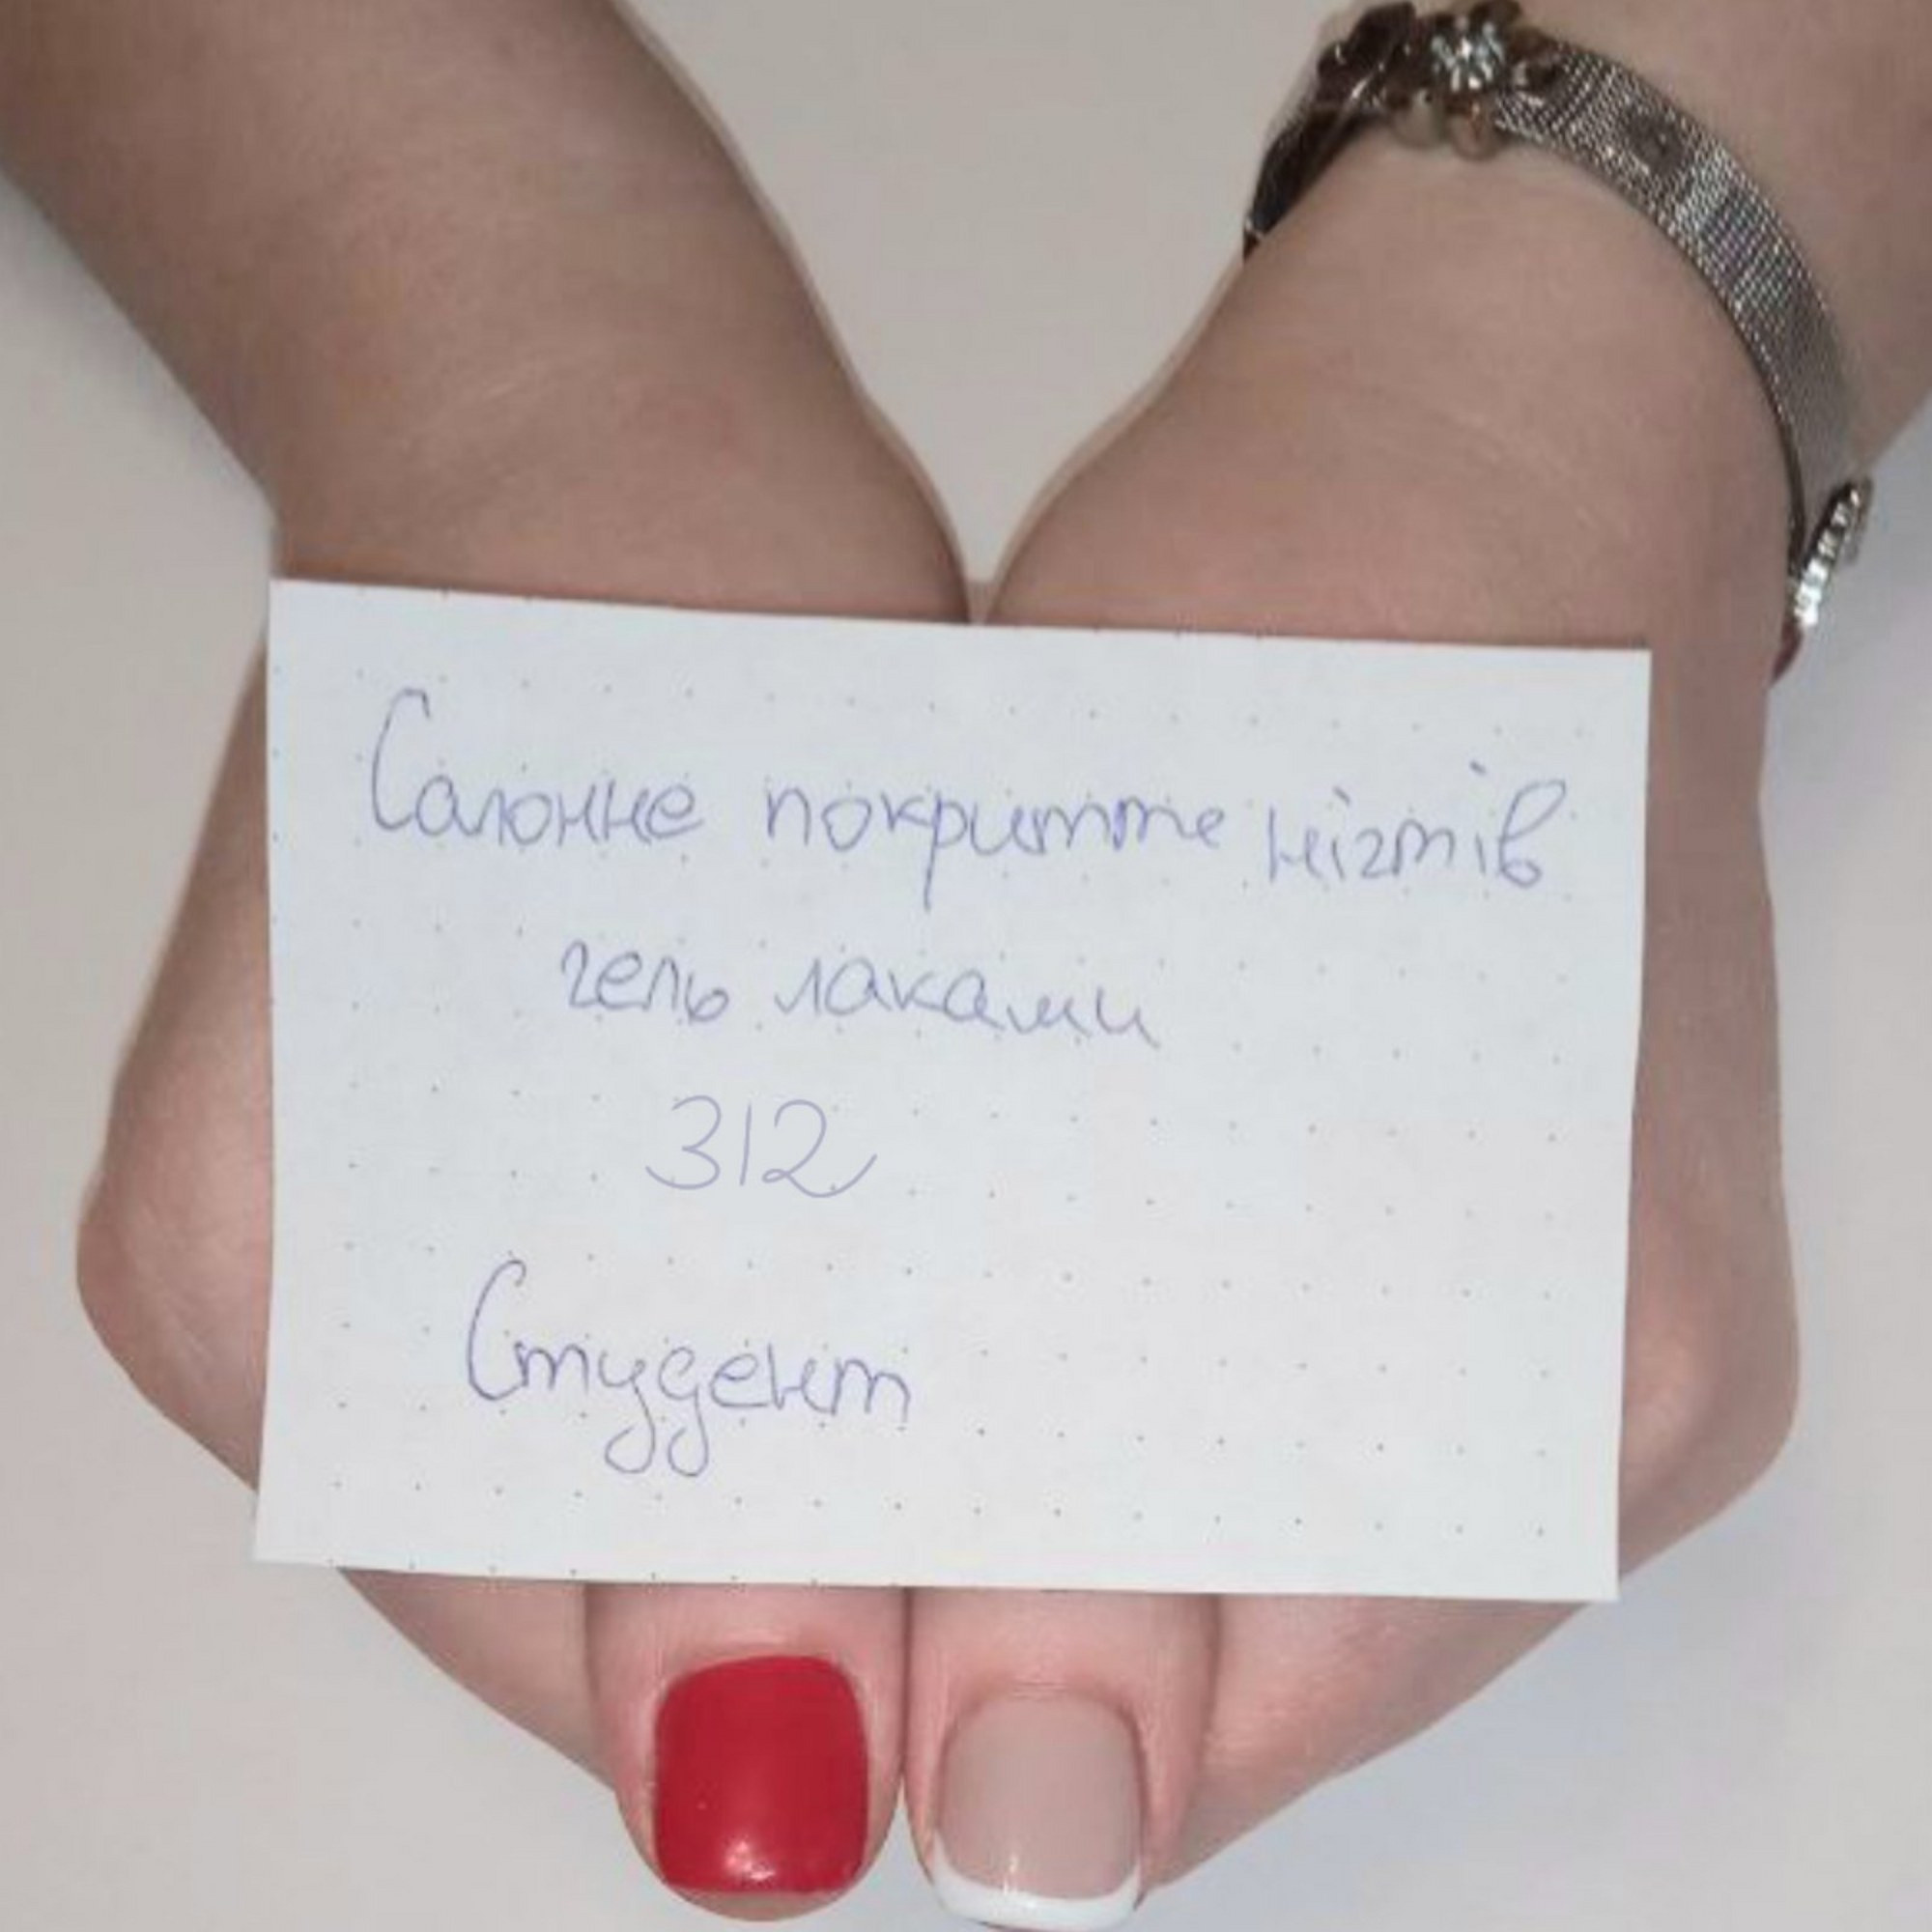 Салонне покритте нігтів
гель лаками
312
Студент